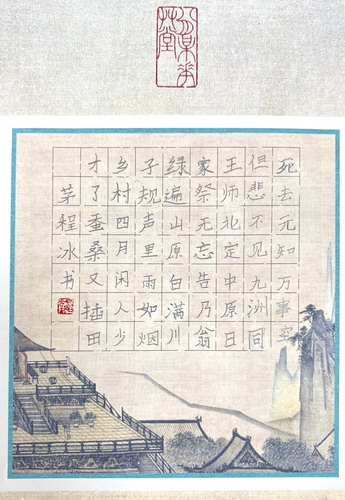 死去元知万事空
但悲不见九洲同
王师北定中原日
家祭无忘告乃翁
绿遍山原白满川
子规声里雨如烟
乡村四月闲人少
才了蚕桑又插田
茅程冰书